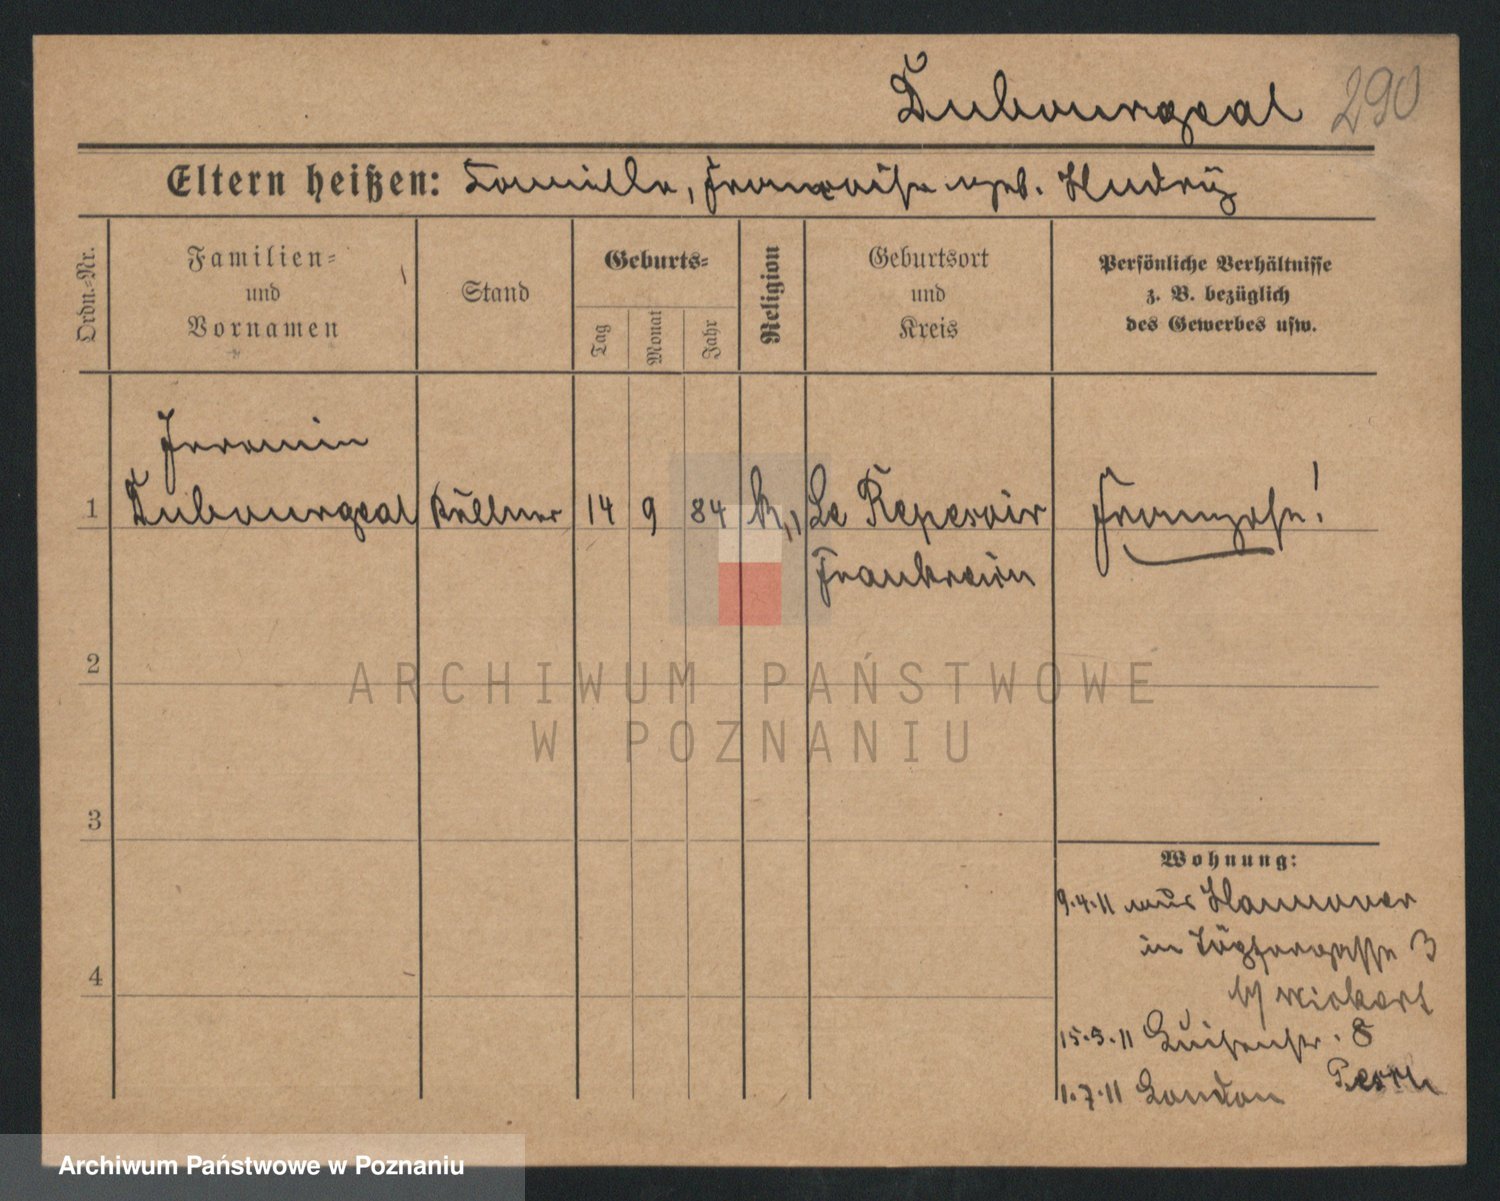 Dubourgeal 290
Eltern heißen: Camille, Françoise geb. Hudry
Ordn.-Nr.
Familien-
und
Vornamen
Stand
Geburts-
Tag
Monat
Jahr
Religion
Geburtsort
und
Kreis
Persönliche Verhältnisse
z. B. bezüglich
des Gewerbes usw.
1
Dubourgeal Kellner 14 9 84 k. Le Reposoir Franzose!
Frankreich
2
3
4
Wohnung:
9.4.11 aus Hannover
in 3
b/
15.5.11 Luisenstr. 8
1.7.11 London
ARCHIWUM PAŃSTWOWE
W POZNANIU
Archiwum Państwowe w Poznaniu